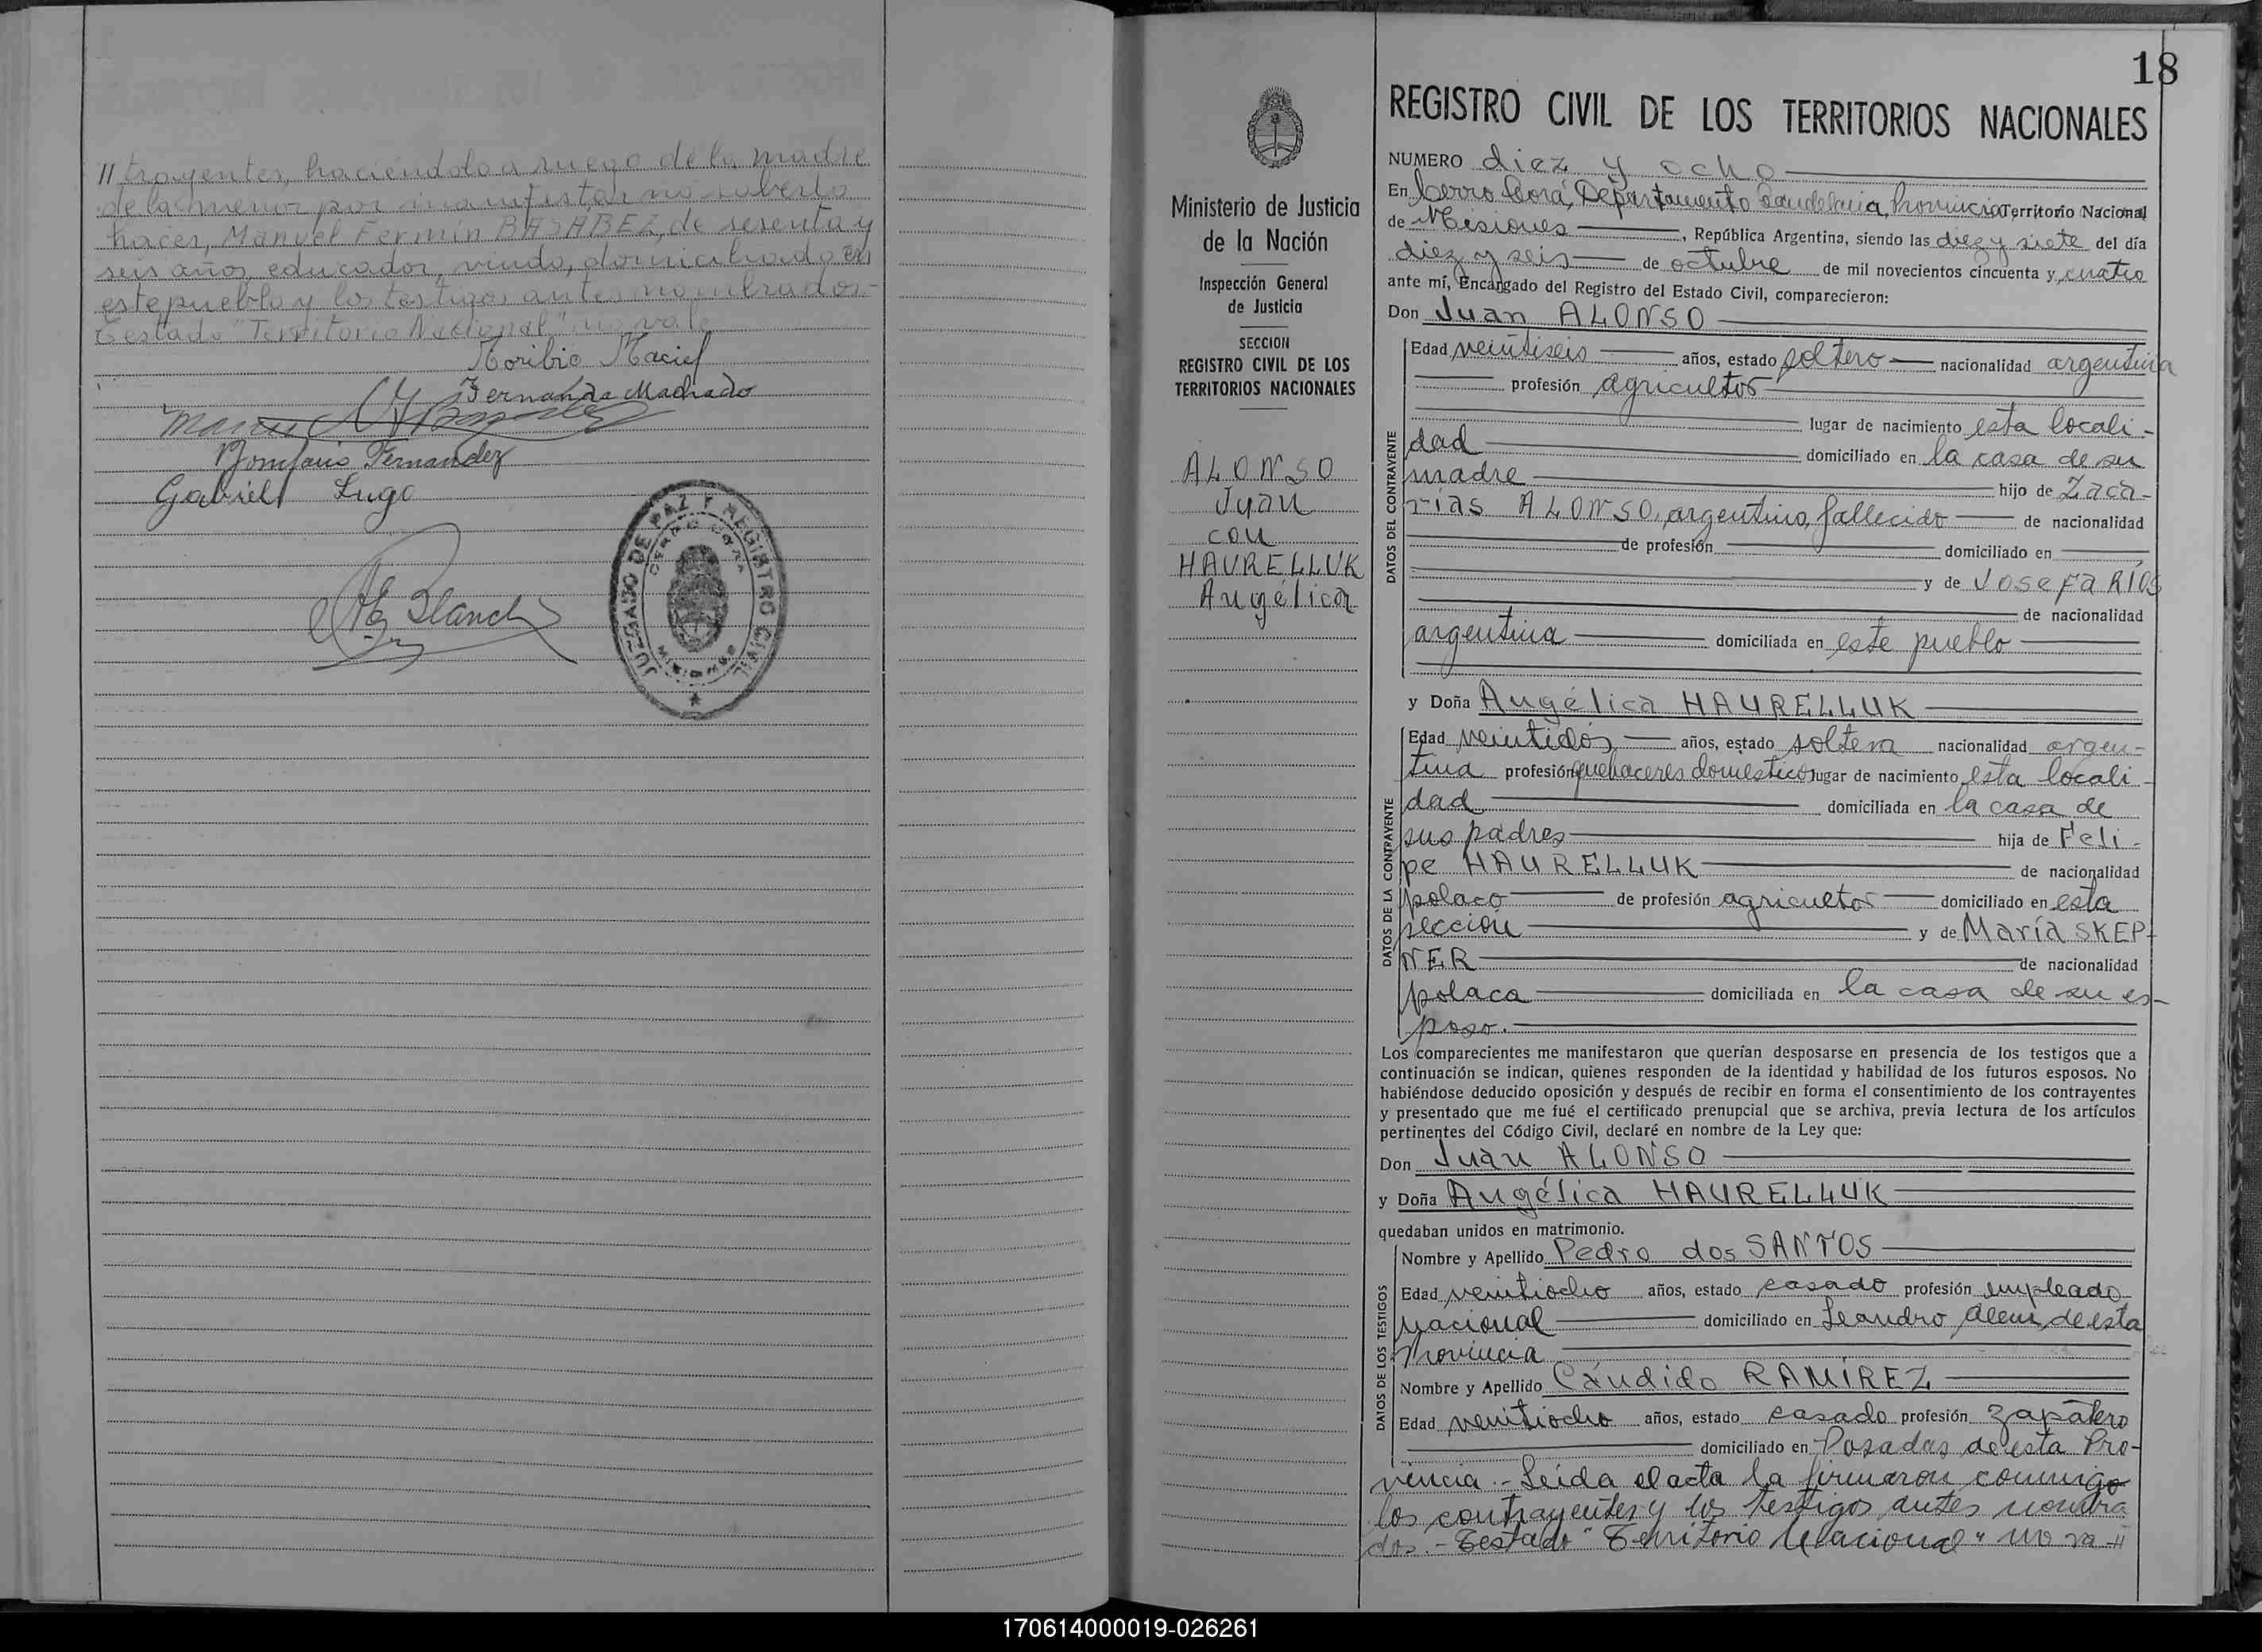 // trayentes, haciéndolo a ruego de la madre
de la menor por manifestar no saberlo
hacer, Manuel Fermín BASABEZ, de sesenta y
seis años, educador, viudo, domiciliado en
este pueblo y los testigos antes nombrados.-
Testado "Territorio Nacional" no vale
Toribio Maciel
Fernanda Machado
Bonifacio Fernandez
Gabriel Lugo
Blanch
JUZGADO DE PAZ Y REGISTRO CIVIL
CERRO CORA
MISIONES
18
Ministerio de Justicia
de la Nación
Inspección General
de Justicia
SECCION
REGISTRO CIVIL DE LOS
TERRITORIOS NACIONALES
ALONSO
Juan
con
HAURELLUK
Angélica
REGISTRO CIVIL DE LOS TERRITORIOS NACIONALES
NUMERO diez y ocho
En Cerro Corá, Departamento Candelaria, Provincia Territorio Nacional
de Misiones, República Argentina, siendo las diez y siete del día
diez y seis de octubre de mil novecientos cincuenta y cuatro
ante mí, Encargado del Registro del Estado Civil, comparecieron:
Don Juan ALONSO
DATOS DEL CONTRAYENTE
Edad veintiseis años, estado soltero nacionalidad argentina
profesión agricultor
lugar de nacimiento esta locali-
dad domiciliado en la casa de su
madre hijo de Zaca-
rías ALONSO, argentino, fallecido de nacionalidad
de profesión domiciliado en
y de Josefa RIOS
de nacionalidad
argentina domiciliada en este pueblo
y Doña Angélica HAURELLUK
DATOS DE LA CONTRAYENTE
Edad veintidós años, estado soltera nacionalidad argen-
tina profesión quehaceres domésticos lugar de nacimiento esta locali-
dad domiciliada en la casa de
sus padres hija de Feli-
pe HAURELLUK de nacionalidad
polaco de profesión agricultor domiciliado en esta
sección y de María SKEP-
NER de nacionalidad
polaca domiciliada en la casa de su es-
poso.
Los comparecientes me manifestaron que querían desposarse en presencia de los testigos que a
continuación se indican, quienes responden de la identidad y habilidad de los futuros esposos. No
habiéndose deducido oposición y después de recibir en forma el consentimiento de los contrayentes
y presentado que me fué el certificado prenupcial que se archiva, previa lectura de los artículos
pertinentes del Código Civil, declaré en nombre de la Ley que:
Don Juan ALONSO
y Doña Angélica HAURELLUK
quedaban unidos en matrimonio.
DATOS DE LOS TESTIGOS
Nombre y Apellido Pedro dos SANTOS
Edad veintiocho años, estado casado profesión empleado
nacional domiciliado en Leandro Alem, de esta
Provincia
Nombre y Apellido Cándido RAMÍREZ
Edad veintiocho años, estado casado profesión zapatero
domiciliado en Posadas de esta Pro-
vincia.- Leída el acta la firmaron conmigo
los contrayentes y los testigos antes nombra
dos.- Testado "Territorio Nacional" no va-//
170614000019-026261